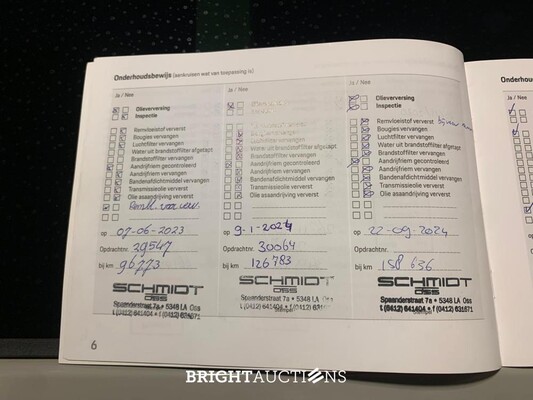 Onderhoudsbewijs (aankruisen wat van toepassing is)
Onderhoud
Ja / Nee
Olieverversing
Inspectie
Remvloeistof ververst
Bougies vervangen
Luchtfilter vervangen
Water uit brandstoffilter afgetapt
Brandstoffilter vervangen
Aandrijfriem gecontroleerd
Aandrijfriem vervangen
Bandenafdichtmiddel vervangen
Transmissieolie ververst
Olie asaandrijving ververst
op 07-06-2023
Opdrachtnr. 29547
bij km 96773
SCHMIDT
OSS
Spaanderstraat 7a • 5348 LA Oss
t (0412) 641404 • f (0412) 631671
Ja / Nee
Bougies vervangen
Luchtfilter vervangen
Water uit brandstoffilter afgetapt
Brandstoffilter vervangen
Aandrijfriem gecontroleerd
Aandrijfriem vervangen
Bandenafdichtmiddel vervangen
Transmissieolie ververst
Olie asaandrijving ververst
op 9-1-2024
Opdrachtnr. 30064
bij km 126783
SCHMIDT
OSS
Spaanderstraat 7a • 5348 LA Oss
t (0412) 641404 • f (0412) 631671
Stempel
Ja / Nee
Olieverversing
Inspectie
Remvloeistof ververst
Bougies vervangen
Luchtfilter vervangen
Water uit brandstoffilter afgetapt
Brandstoffilter vervangen
Aandrijfriem gecontroleerd
Aandrijfriem vervangen
Bandenafdichtmiddel vervangen
Transmissieolie ververst
Olie asaandrijving ververst
op 22-09-2024
Opdrachtnr.
bij km 158 636
SCHMIDT
OSS
Spaanderstraat 7a • 5348 LA Oss
t (0412) 641404 • f (0412) 631671
Stempel
6
BRIGHTAUCTIONS